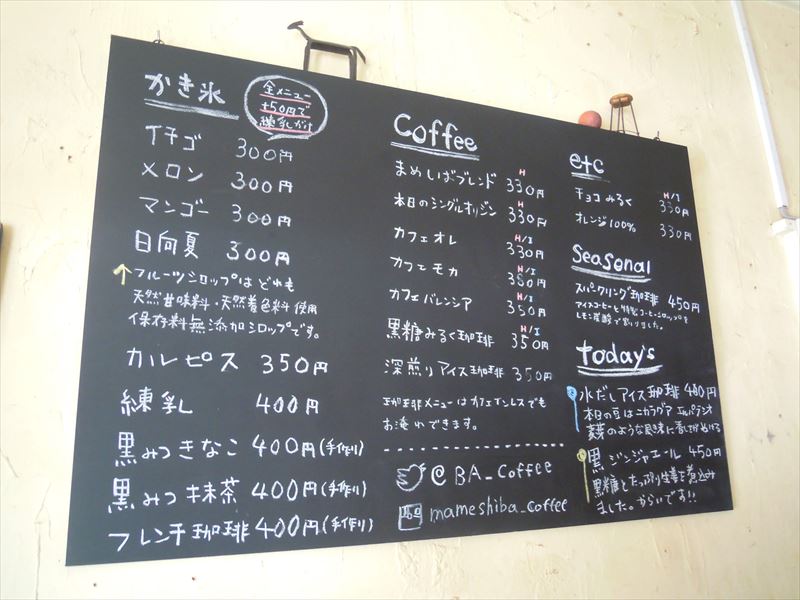 かき氷
全メニュー
+50円で
練乳がけ
イチゴ 300円
メロン 300円
マンゴー 300円
日向夏 300円
↑フルーツシロップはどれも
天然甘味料・天然着色料使用
保存料無添加シロップです。
カルピス 350円
練乳 400円
黒みつきなこ 400円(手作り)
黒みつ抹茶 400円(手作り)
フレンチ珈琲 400円(手作り)
Coffee
まめしばブレンド H 330円
本日のシングルオリジン H 330円
カフェオレ H/I 330円
カフェモカ H/I 380円
カフェバレンシア H/I 350円
黒糖みるく珈琲 H/I 350円
深煎りアイス珈琲 350円
珈琲メニューはカフェインレスでも
お淹れできます。
@BA_Coffee
mameshiba_coffee
etc
チョコみるく H/I 330円
オレンジ100% 330円
Seasonal
スパークリング珈琲 450円
アイスコーヒーと特製コーヒーシロップを
レモン炭酸で割りました。
today's
水だしアイス珈琲 400円
本日の豆はニカラグア エルパライオ
のような良味に香しさがぬける
黒ジンジャエール 450円
黒糖とたっぷり生姜を煮込み
ました。からいです!!